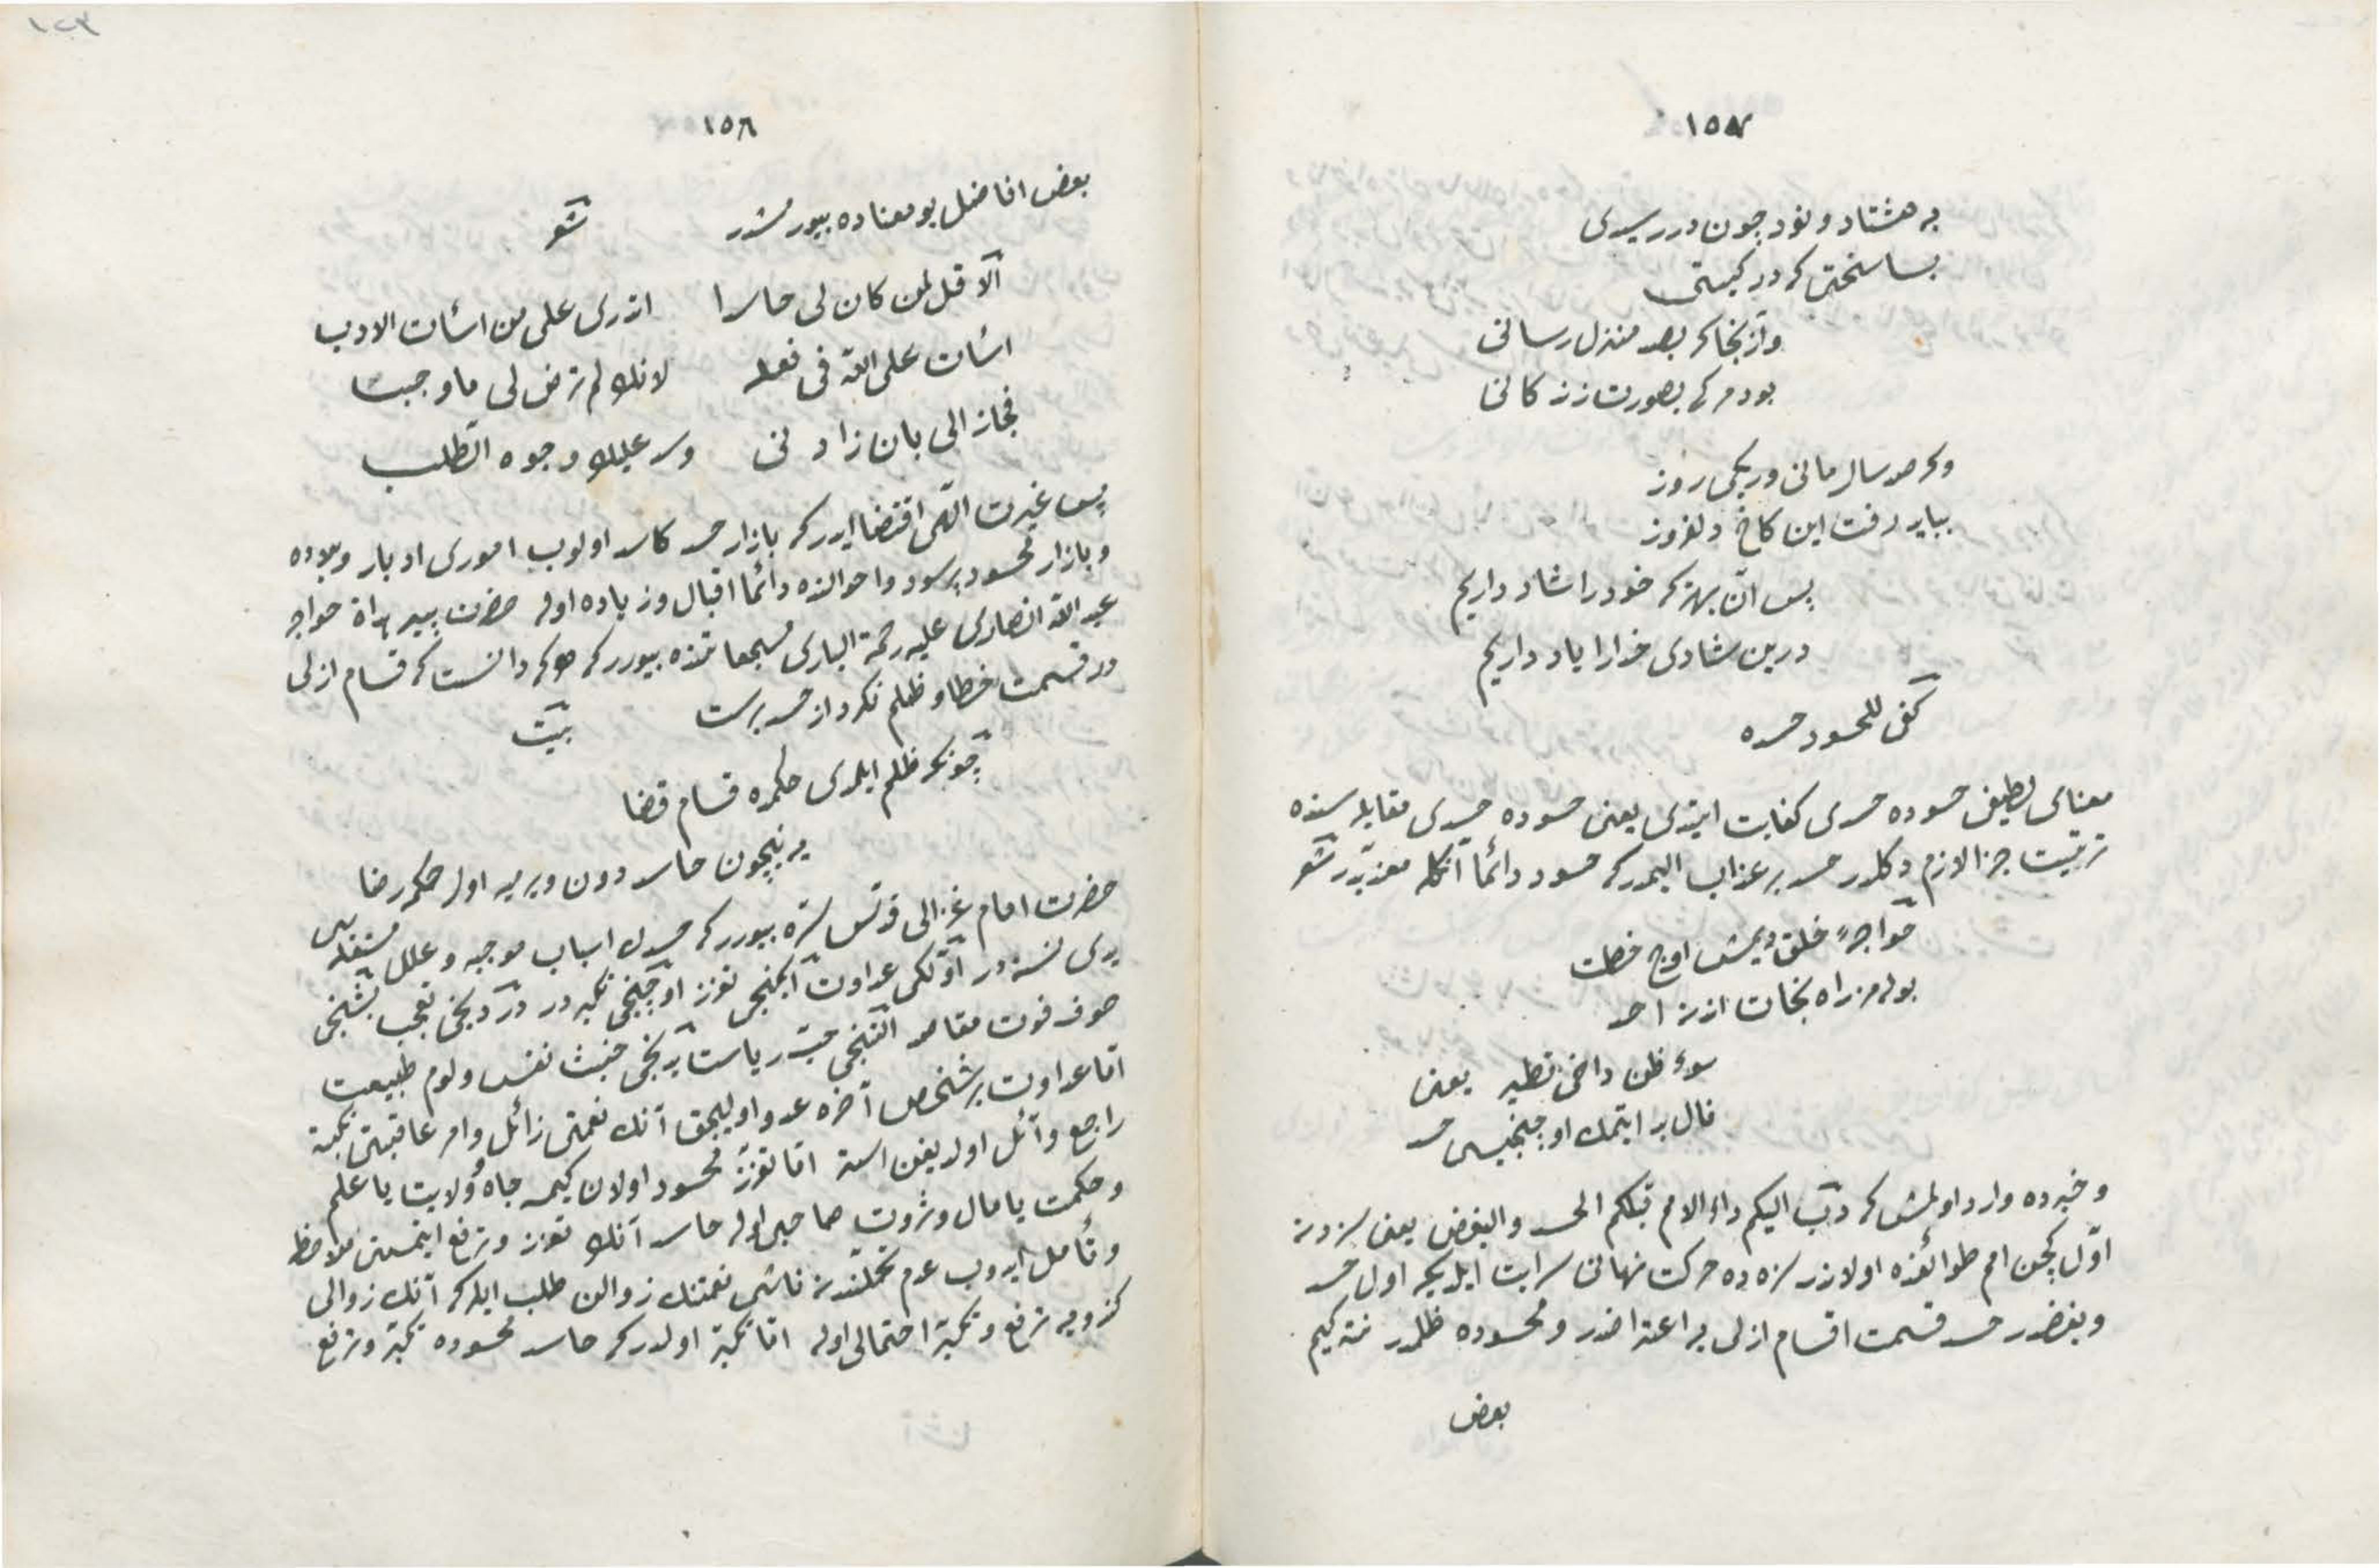 ١٥٧
به هشتاد و نود چون در رسیدی
بسا سختی که در کیتی
وز آنجا کر بصد منزل رسانی
بود مرکی بصورت زندکانی
وکر صد سال مانی ور یکی روز
بباید رفت این کاخ دلفروز
پس آن بهتر که خود را شاد داریم
درین شادی خدا را یاد داریم
کفی للحسود حسده
معنای لطیفی حسوده حسدی کفایت ایتدی یعنی حسوده حسدی مقابله سنده
ترتیب جزا لازم دکلدر حسد بر عذاب الیمدر که حسود دائما آنکله معذبدر شعر
خواجهٔ خلق دیمش اوچ خصلت
بوله مز راه نجات اندن احد
سوء ظن داخی تطیر یعنی
فال بد ایتمك اوچنجیسی حسد
و خبرده وارد اولمش که دبّ الیکم داء الامم قبلکم الحسد والبغض یعنی سزدن
اوّل کچن امم طوائفنده اولان درد سزه ده حرکت نهانی سرایت ایلیه جکدر اول حسد
و بغضدر حسد قسمت اقسام ازلی یه اعتراضدر و محسوده ظلمدر نته کیم
بعض
١٥٨
بعض افاضل بو معناده بیورمشدر شعر
ألا قل لمن کان لی حاسدا اتدری علی من اسأت الادب
اسأت علی الله فی فعله لانك لم ترض لی ما وجبت
فجازالی بان زادنی وسد علیك وجوه الطلب
پس غیرت الهی اقتضا ایدر که بازار حسد کاسد اولوب اموری ادبار و بیوده
و بازار محسود پرسود و احوالنده دائما اقبال و زیاده اوله حضرت پیر هراة خواجه
عبد الله انصاری علیه رحمة الباری مسجعاتنده بیوررکه هر که دانست که قسام ازلی
در قسمت خطا و ظلم نکرد از حسد برست بیت
چونکه ظلم ایلمدی حکمده قسام قضا
یا نیچون حاسد دون ویرمیه اول حکمه رضا
حضرت امام غزالی قدّس سرّه بیوررکه حسدك اسباب موجبه و علل مستقله سی
یدی نسنه در اوّلکی عداوت ایکنجی تعزز اوچنجی تکبردر دردنجی تعجب بشنجی
خوف فوت مقاصد التنجی حبّ ریاست یدنجی خبث نفس و لوم طبیعت
امّا عداوت بر شخص آخره عدو اولیجق آنك نعمتی زائل و امر عاقبتی نکبته
راجع و آئل اولدیغن استر امّا تعزز محسود اولان کیمسه جاه و ولایت یا علم
و حکمت یا مال و ثروت صاحبی اوله حاسد آنك تعزز و ترفع ایتمسین ملاحظه
و تأمل ایدوب عدم تحملندن ناشی نعمتنك زوالن طلب ایلر که آنك زوالی
کندویه ترفع و تکبر احتمالی اوله امّا تکبر اولدرکه حاسد محسوده تکبر و ترفع